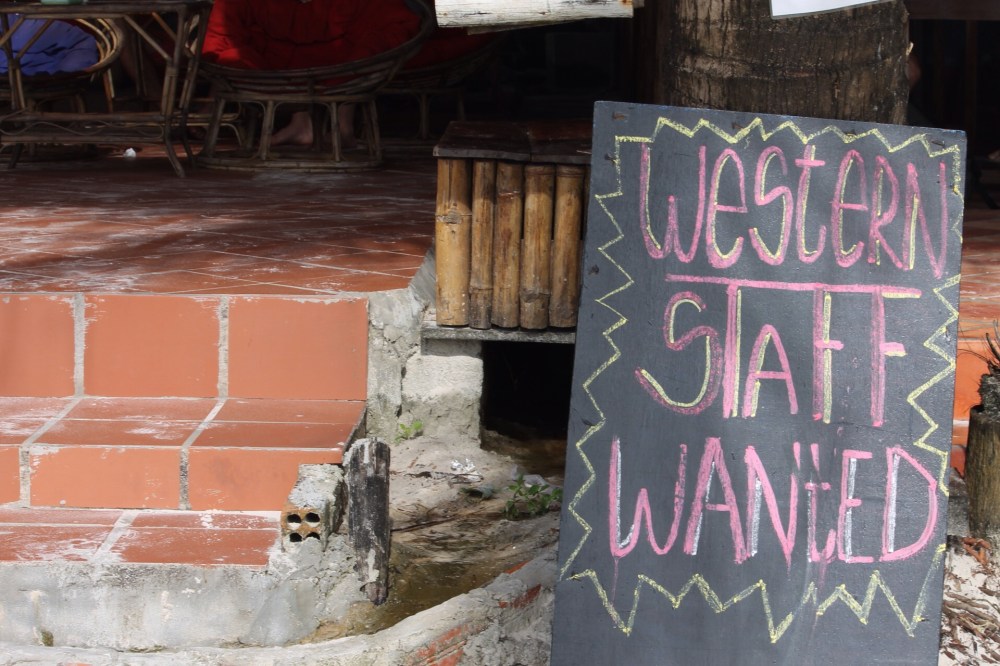 WESTERN
STAFF
WANTED